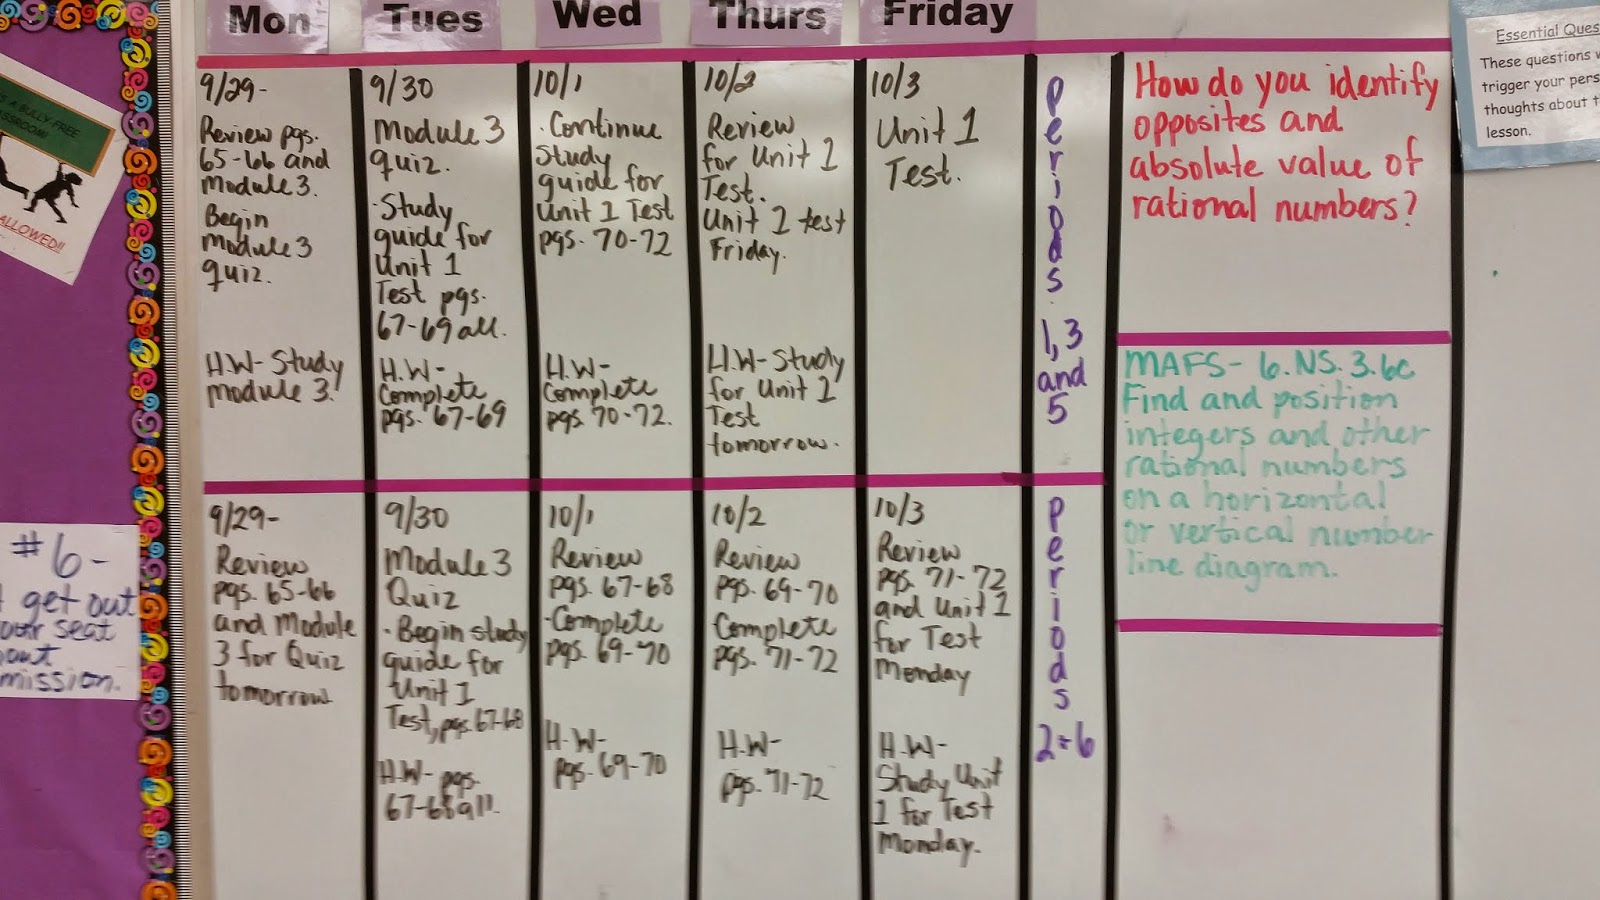 Mon
Tues
Wed
Thurs
Friday
9/29-
Review pgs.
65-66 and
Module 3.
Begin
Module 3
quiz.
H.W- Study
module 3.
9/30
Module 3
quiz.
·Study
guide for
Unit 1
Test pgs.
67-69 all.
H.W-
Complete
pgs. 67-69
10/1
·Continue
Study
guide for
Unit 1 Test
pgs. 70-72
H.W-
Complete
pgs 70-72.
10/2
Review
for Unit 1
Test.
Unit 1 test
Friday.
H.W- Study
for Unit 1
Test
tomorrow.
10/3
Unit 1
Test.
Periods
1,3
and
5
9/29-
Review
pgs. 65-66
and Module
3 for Quiz
tomorrow
9/30
Module 3
Quiz
·Begin study
guide for
Unit 1
Test, pgs. 67-68
H.W- pgs.
67-68 all.
10/1
Review
pgs. 67-68
·Complete
pgs. 69-70
H.W-
pgs. 69-70
10/2
Review
pgs. 69-70
Complete
pgs. 71-72
H.W-
pgs. 71-72
10/3
Review
pgs. 71-72
and Unit 1
for Test
Monday
H.W-
Study Unit
1 for Test
Monday.
Periods
2+6
How do you identify
opposites and
absolute value of
rational numbers?
MAFS- 6.NS.3.6c
Find and position
integers and other
rational numbers
on a horizontal
or vertical number
line diagram.
Essential Ques
These questions
trigger your pers
thoughts about t
lesson.
A BULLY-FREE
ALLOWED!!
#6-
get out
seat
out
mission.